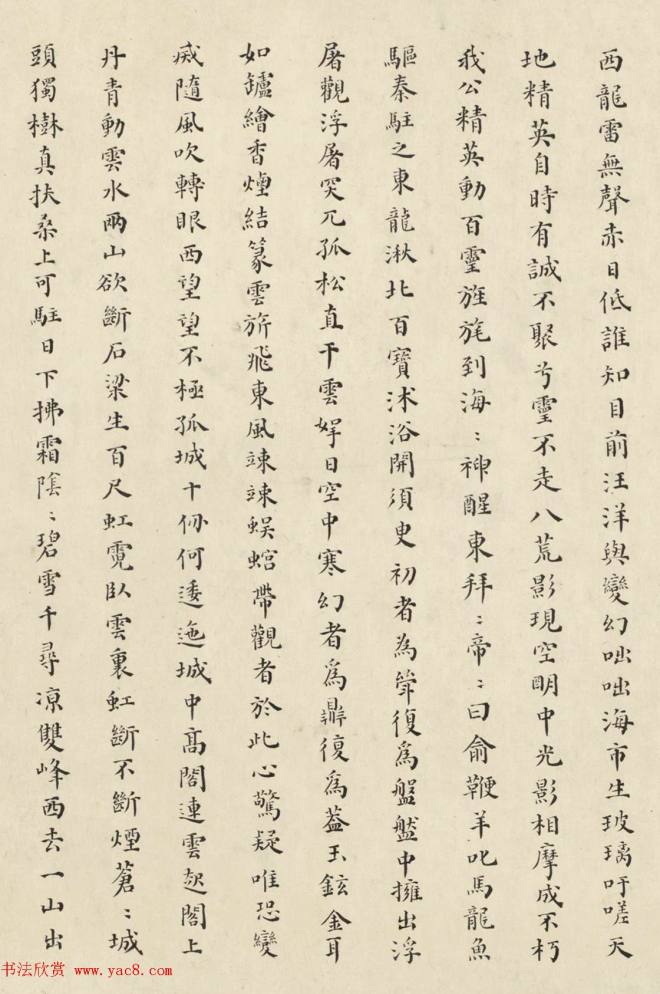 西龍雷無聲赤日低誰知目前汪洋與變幻咄咄海市生玻璃吁嗟天
地精英自時有誠不聚兮靈不走八荒影現空明中光影相摩成不朽
我公精英動百靈旌旄到海〻神醒東拜〻帝〻曰俞鞭羊叱馬龍魚
驅秦駐之東龍湫北百寶沭浴開須臾初者為聳復為盤盤中擁出浮
屠觀浮屠突兀孤松直干雲娙日空中寒幻者為鼎復為蓋玉鉉金耳
如鑪繪香煙結篆雲旂飛東風竦竦蜈蜙帶觀者於此心驚疑唯恐變
烕隨風吹轉眼西望望不極孤城十份何逶迤城中髙閣連雲起閣上
丹青動雲水兩山欲斷石梁生百尺虹霓臥雲裏虹斷不斷煙蒼〻城
頭獨樹真扶桑上可駐日下拂霜陰〻碧雪千尋凉雙峰西去一山出
书法欣赏 www.yac8.com